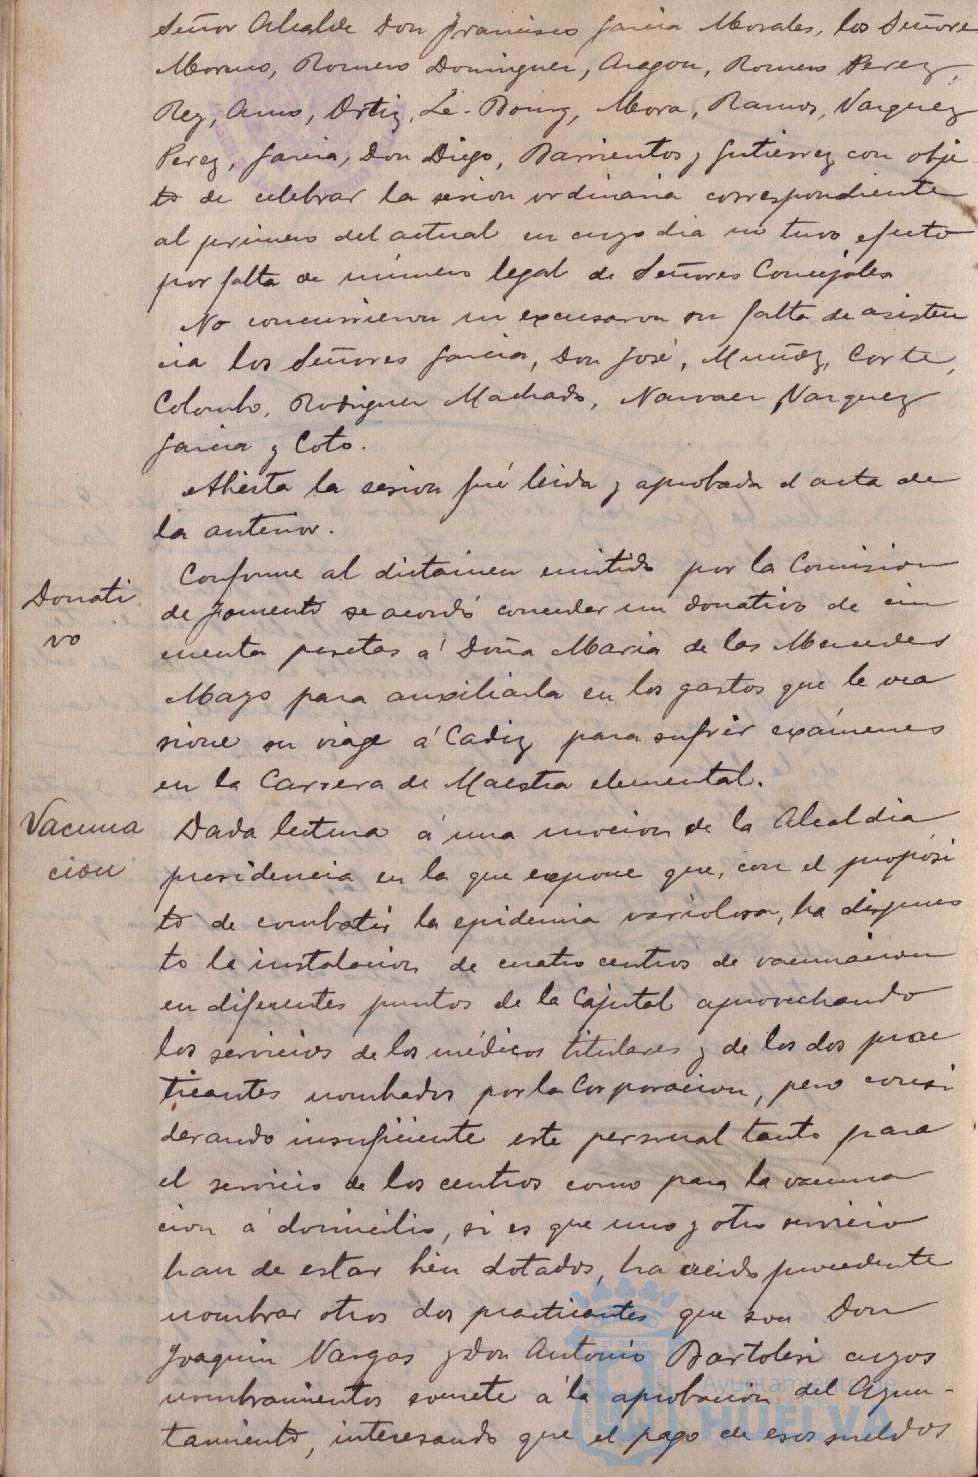 Señor Alcalde Don Francisco Garcia Morales, los Señore
Moreno, Romero Dominguez, Aragon, Romero Perez,
Rey, Amo, Ortiz, Le-Bourg, Mora, Ramos, Vazquez
Perez, Garcia, Don Diego, Barrientos y Gutierrez con obje
to de celebrar la sesion ordinaria correspondiente
al primero del actual en cuyo dia no tuvo efecto
por falta de número legal de Señores Concejales
No concurrieron ni excusaron su falta de asisten
cia los Señores Garcia, Don José, Muñoz, Corte,
Colombo, Rodriguez Machado, Narvaez Vazquez
Garcia y Coto.
Abierta la sesion fué leida y aprobada el acta de
la anterior.
Donati
vo
Conforme al dictamen emitido por la Comision
de fomento se acordó conceder un donativo de cin
cuenta pesetas á Doña Maria de las Mercedes
Mayo para auxiliarla en los gastos que le oca
sione su viage á Cadiz para sufrir exámenes
en la Carrera de Maestra elemental.
Vacuna
cion
Dada lectura á una mocion de la Alcaldia
presidencia en la que expone que, con el propósi
to de combatir la epidemia variolosa, ha dispues
to la instalacion de cuatro centros de vacunacion
en diferentes puntos de la Capital aprovechando
los servicios de los médicos titulares y de los dos prac
ticantes nombrados por la Corporacion, pero consi
derando insuficiente este personal tanto para
el servicio de los centros como para la vacuna
cion á domicilio, si es que uno y otro servicio
han de estar bien dotados, ha creido procedente
nombrar otros dos practicantes que son Don
Joaquin Vargas y Don Antonio Bartolesi cuyos
nombramientos somete á la aprobacion del Ayun-
tamiento, interesando que el pago de esos sueldos
Ayuntamiento de
HUELVA